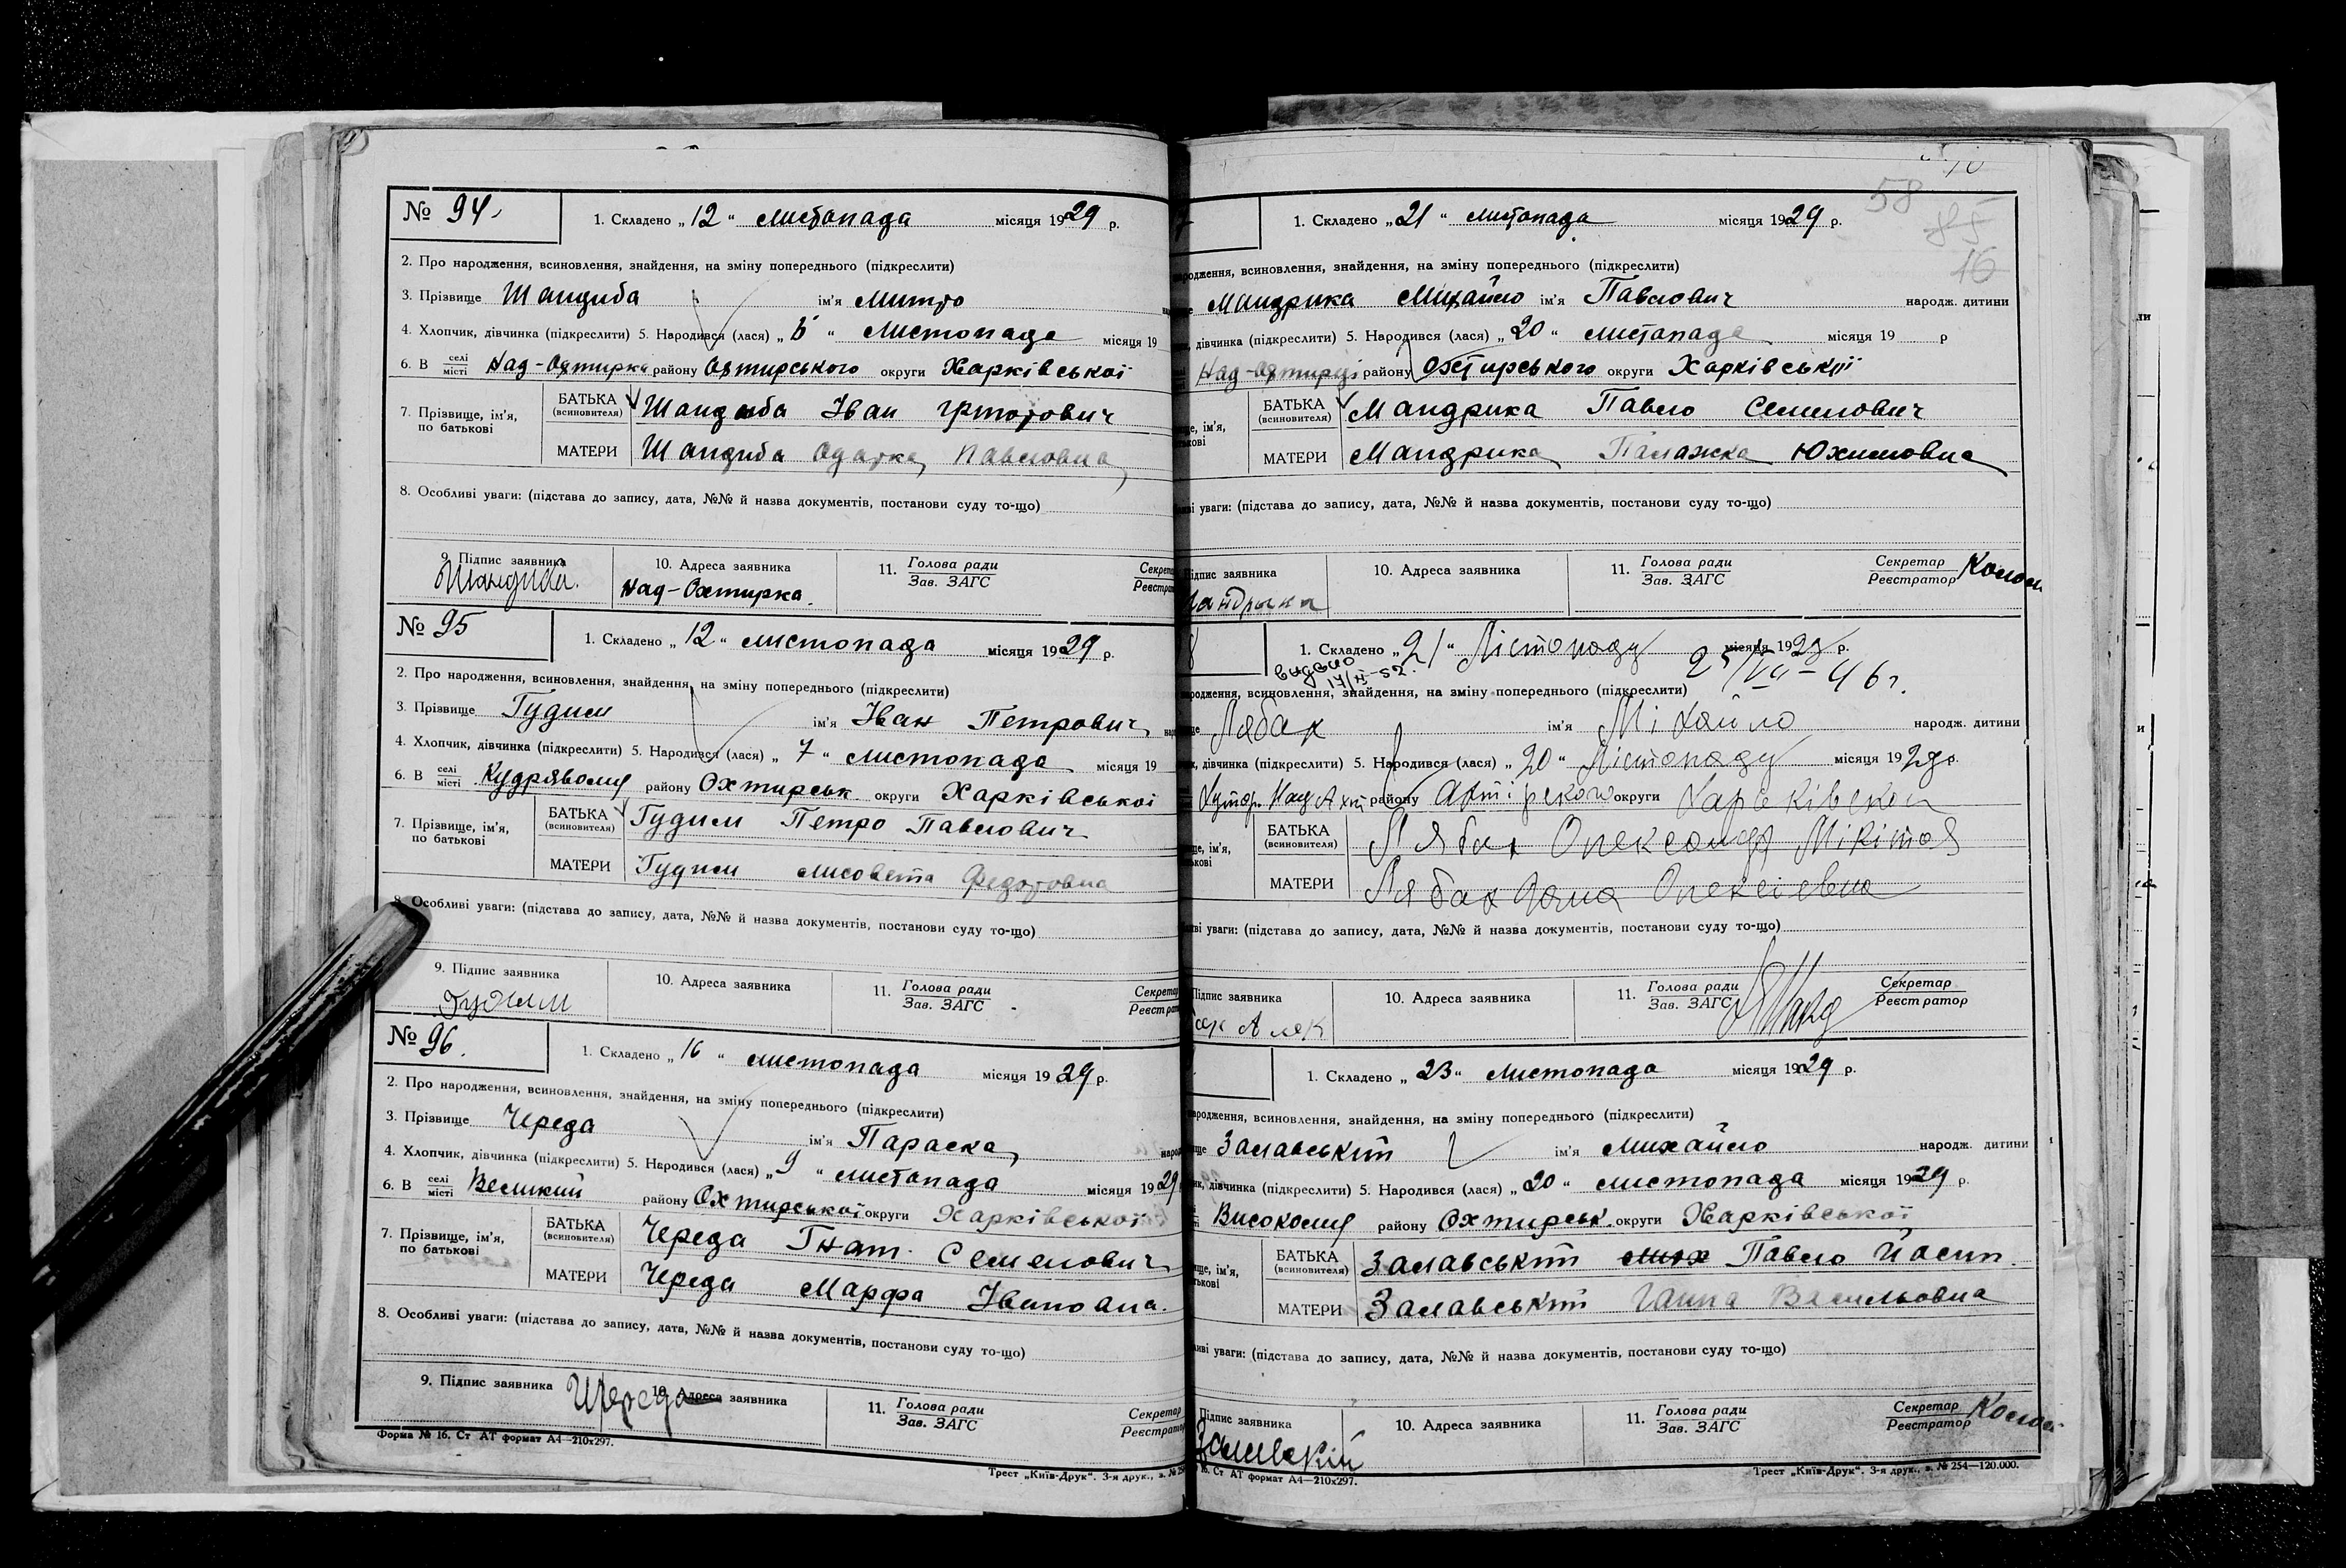 № 94
1. Складено „12“ листопада місяця 1929 р.
2. Про народження, всиновлення, знайдення, на зміну попереднього (підкреслити)
3. Прізвище Шандиба ім'я Митро
4. Хлопчик, дівчинка (підкреслити) 5. Народився (лася) „ “ Листопада місяця 19
6. В селі місті Над-Охтирка району Охтирського округи Харківської
7. Прізвище, ім'я, по батькові
БАТЬКА (всиновителя) Шандиба Іван Григорович
МАТЕРИ Шандиба Одарка Павловна
8. Особливі уваги: (підстава до запису, дата, №№ й назва документів, постанови суду то-що)
9. Підпис заявника Шандиба.
10. Адреса заявника Над-Охтирка.
11. Голова ради Зав. ЗАГС
№ 95
1. Складено „12“ листопада місяця 1929 р.
2. Про народження, всиновлення, знайдення, на зміну попереднього (підкреслити)
3. Прізвище Гудим ім'я Іван Петрович
4. Хлопчик, дівчинка (підкреслити) 5. Народився (лася) „7“ листопада місяця 19
6. В селі місті району Охтирськ. округи Харківської
7. Прізвище, ім'я, по батькові
БАТЬКА (всиновителя) Гудим Петро Павлович
МАТЕРИ Гудим Лисовета Федоровна
8. Особливі уваги: (підстава до запису, дата, №№ й назва документів, постанови суду то-що)
9. Підпис заявника Гудим
10. Адреса заявника
11. Голова ради Зав. ЗАГС
№ 96.
1. Складено „16“ листопада місяця 1929 р.
2. Про народження, всиновлення, знайдення, на зміну попереднього (підкреслити)
3. Прізвище Череда ім'я Параска
4. Хлопчик, дівчинка (підкреслити) 5. Народився (лася) „9“ листопада місяця 1929
6. В селі місті Великий району Охтирської округи Харківської
7. Прізвище, ім'я, по батькові
БАТЬКА (всиновителя) Череда Гнат. Семенович
МАТЕРИ Череда Марфа Івановна.
8. Особливі уваги: (підстава до запису, дата, №№ й назва документів, постанови суду то-що)
9. Підпис заявника Череда
10. Адреса заявника
11. Голова ради Зав. ЗАГС
Форма № 16. Ст АТ формат А4—210х297.
Трест „Київ-Друк“. 3-я друк., з. №
58
85
16
1. Складено „21“ листопада місяця 1929 р.
народження, всиновлення, знайдення, на зміну попереднього (підкреслити)
Мандрика Михайло ім'я Павлович народж. дитини
дівчинка (підкреслити) 5. Народився (лася) „20“ листопада місяця 19 р
Над-Охтирці району Охтирського округи Харківської
БАТЬКА (всиновителя) Мандрика Павло Семенович
МАТЕРИ Мандрика Палажка Юхимовна
уваги: (підстава до запису, дата, №№ й назва документів, постанови суду то-що)
Підпис заявника Мандрыка
10. Адреса заявника
11. Голова ради Зав. ЗАГС
Секретар Реєстратор
8
1. Складено „21“ Лістопаду місяця 1929 р.
видано
25/VII–46 г.
народження, всиновлення, знайдення, на зміну попереднього (підкреслити)
Лябах ім'я Міхайло народж. дитини
дівчинка (підкреслити) 5. Народився (лася) „20“ Лістопаду місяця 1929 р.
Хутор. Над Ахт району округи
БАТЬКА (всиновителя) Лябах Олександр Мікітов
МАТЕРИ Лябах Олексіевна
уваги: (підстава до запису, дата, №№ й назва документів, постанови суду то-що)
Підпис заявника
10. Адреса заявника
11. Голова ради Зав. ЗАГС
Секретар Реєстратор
1. Складено „23“ листопада місяця 1929 р.
народження, всиновлення, знайдення, на зміну попереднього (підкреслити)
Залавський ім'я Михайло народж. дитини
дівчинка (підкреслити) 5. Народився (лася) „20“ листопада місяця 1929 р.
району Охтирськ. округи Харківської
БАТЬКА (всиновителя) Залавський Павло Йосип.
МАТЕРИ Залавський Ганна Васильовна
уваги: (підстава до запису, дата, №№ й назва документів, постанови суду то-що)
Підпис заявника
10. Адреса заявника
11. Голова ради Зав. ЗАГС
Секретар Реєстратор
16. Ст АТ формат А4—210х297.
Трест „Київ-Друк“. 3-я друк., з. № 254—120.000.